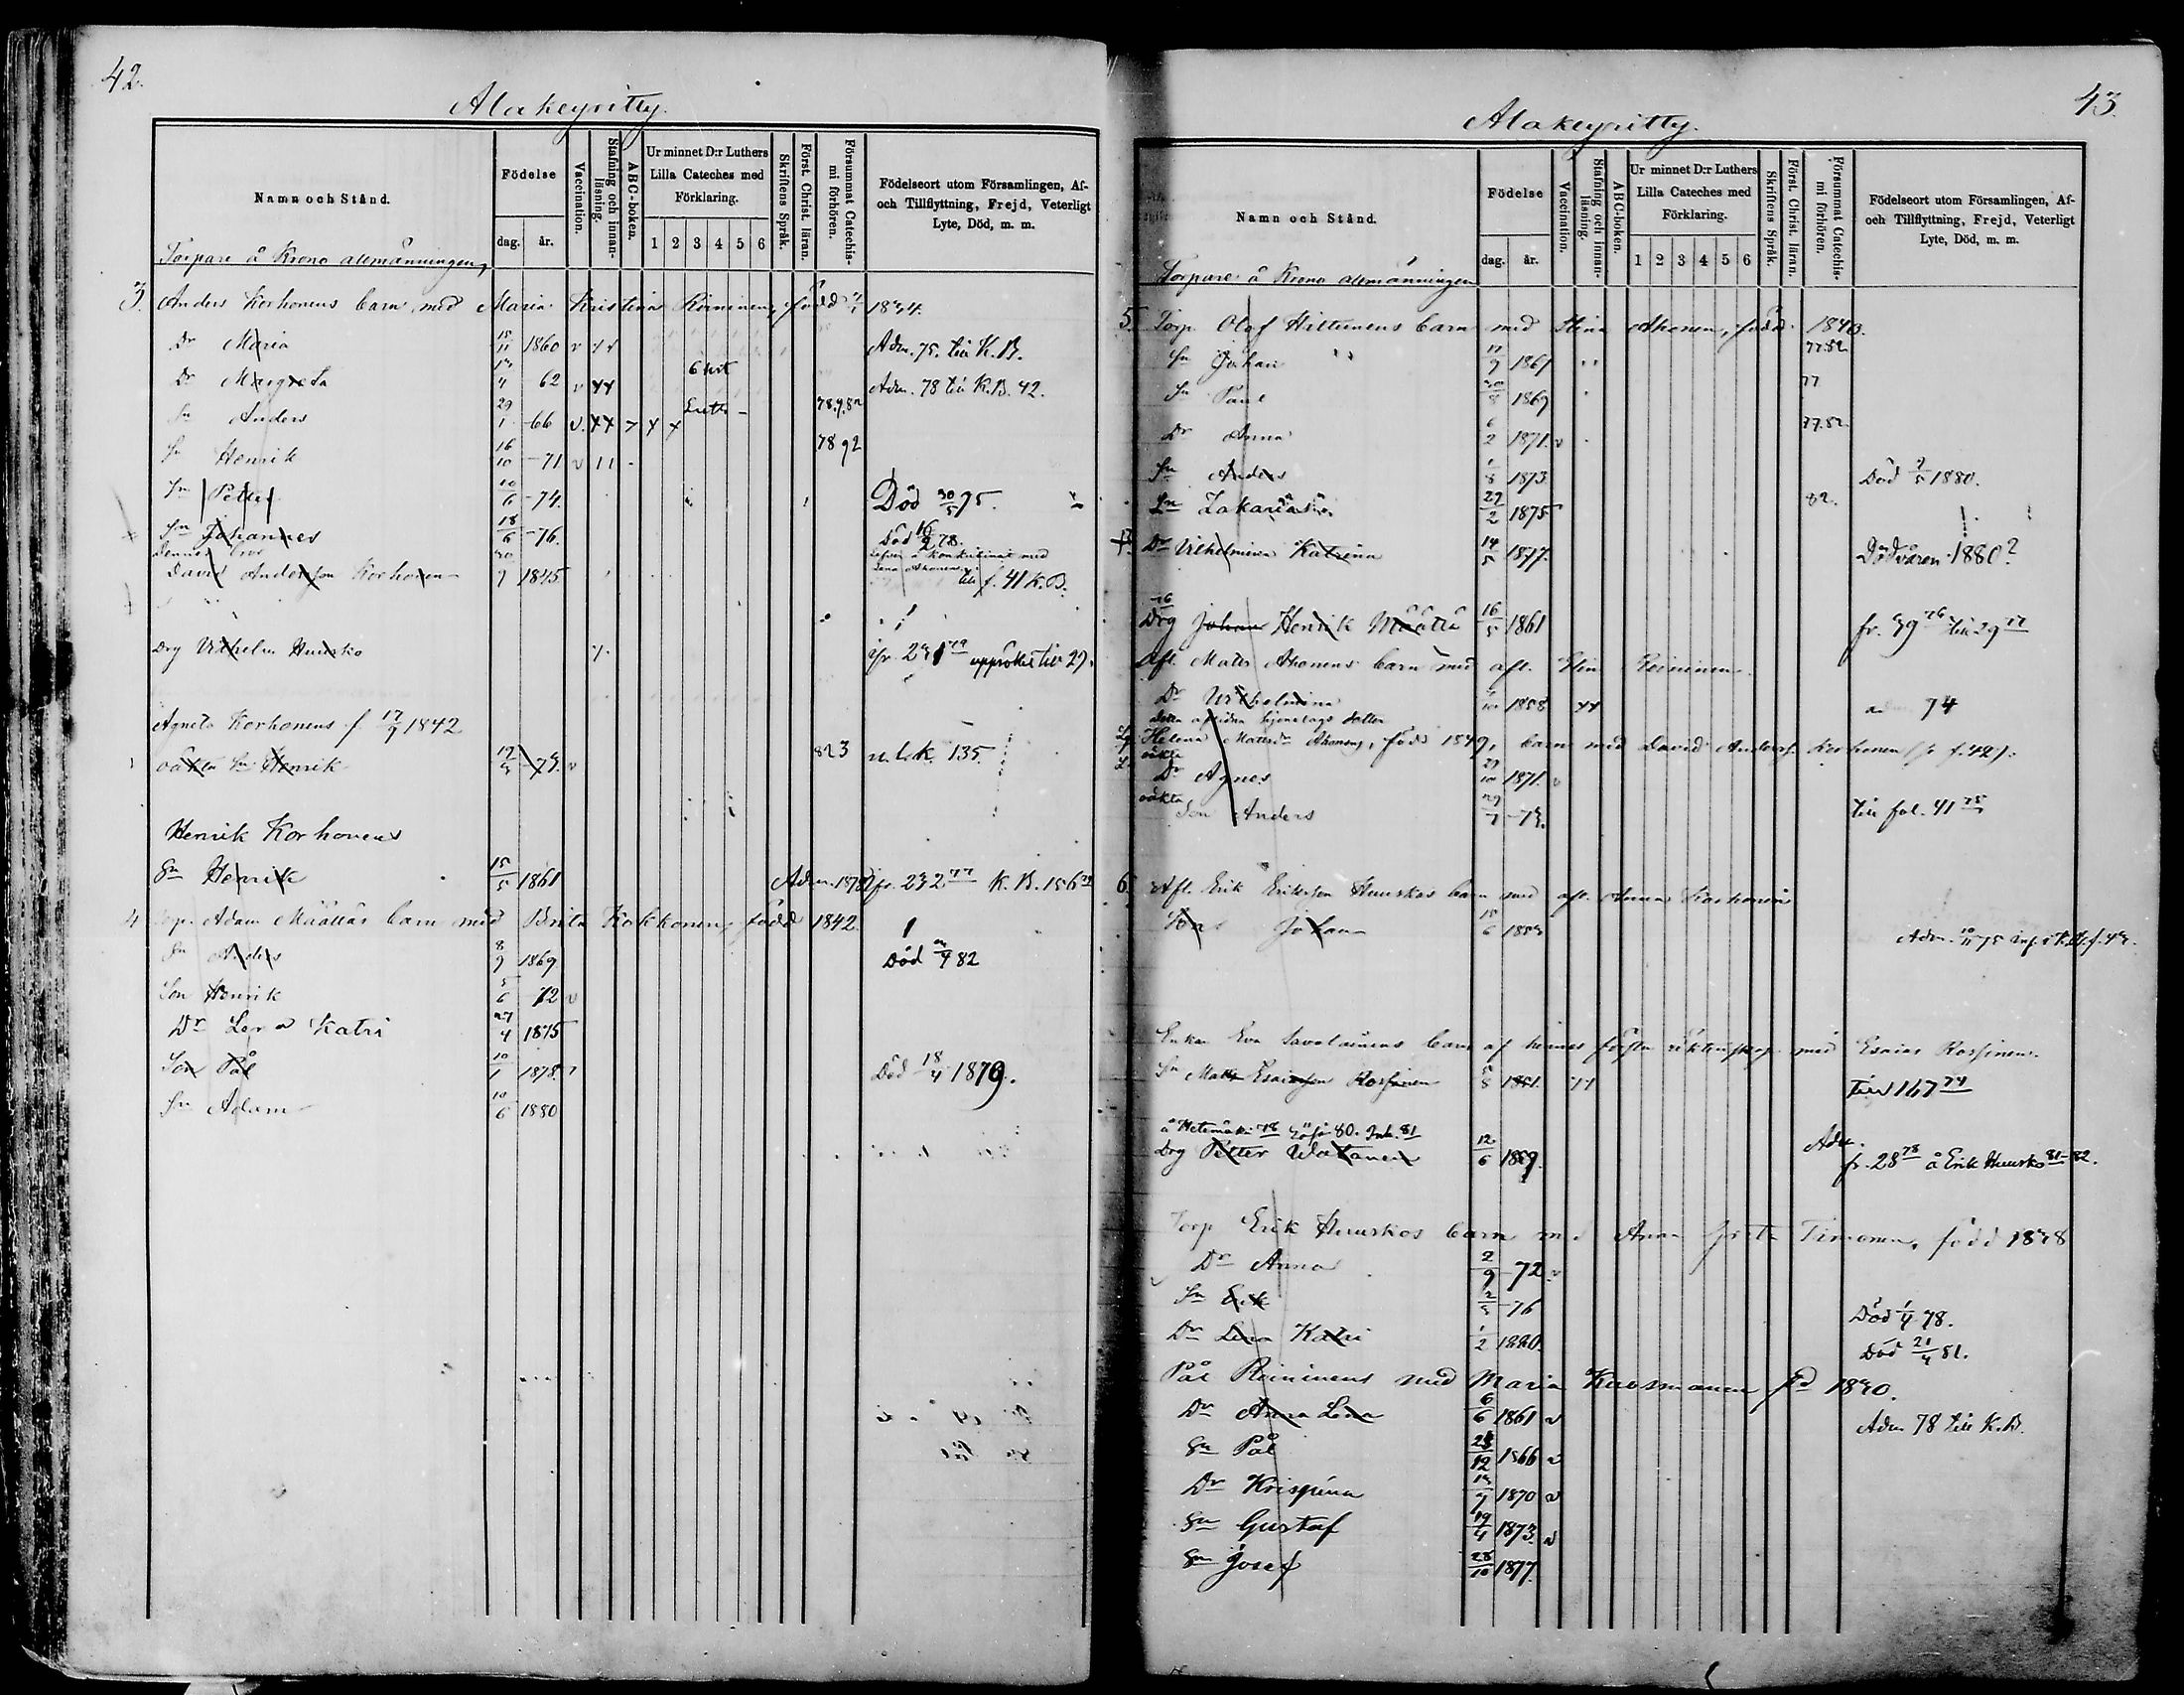 42.
Alakeyritty.
Namn och Stånd.
Födelse
dag. år.
Vaccination.
Stafning och innanläsning.
ABC-boken.
Ur minnet D:r Luthers Lilla Cateches med Förklaring.
1 2 3 4 5 6
Skriftens Språk.
Först. Christ. läran.
Försummat Catechismi förhören.
Födelseort utom Församlingen, Af- och Tillflyttning, Frejd, Veterligt Lyte, Död, m. m.
Torpare å Krono allmänningen,
3. Anders Korhonens barn med Maria Kristina Räininen, född 1834.
Dr Maria 15/11 1860 v Adm. 75. till K.B.
Dr Margreta 13/4 62 v Adm. 78 till K.B. 42.
Sn Anders 29/1 66 v. 78.9.82
Sn Henrik 16/10 -71 v 78 92
Sn Petter 10/6 -74. Död 30/5 75.
Sn Johannes 18/6 -76. Död 16/2 78.
Dennes bror
David Andersson Korhonen 7 1845 till f. 41 K.B.
Drg Vilhelm Huusko
Agneta Korhonens f. 17/9 1842
oäkta Sn Henrik 12 -73. v 823 n.b.k. 135.
Henrik Korhonens
Sn Henrik 15/5 1861 Adm. 1878 fr. 232 77 K.B. 156
4 Torp. Adam Määttäs barn med Brita Kokkonen, född 1842.
Sn Anders 8/9 1869 Död 4 82
Son Henrik 5/6 72 v
Dr Lena Katri 27/4 1875
Son Pål 10/1 1878. Död 18/4 1879.
Sn Adam 10/6 1880
43.
Alakeyritty.
Namn och Stånd.
Födelse
dag. år.
Vaccination.
Stafning och innanläsning.
ABC-boken.
Ur minnet D:r Luthers Lilla Cateches med Förklaring.
1 2 3 4 5 6
Skriftens Språk.
Först. Christ. läran.
Försummat Catechismi förhören.
Födelseort utom Församlingen, Af- och Tillflyttning, Frejd, Veterligt Lyte, Död, m. m.
Torpare å Krono allmänningen
5. Torp. Olof Hiltunens barn med Stina Ahonen, född 1843.
Sn Johan 17/9 1861 77.82
Sn Paul 8 1869 77
Dr Anna 6/2 1871. v 77.82.
Sn Anders 1873. Död 1880.
Sn Zakarias 27/2 1875 82.
Dr Vilhelmina Katrina 14/5 1877. Död våren 1880?
Drg Johan Henrik Määttä 16/5 1861 fr. 39 76 till 29 77
Afl. Mats Ahonens barn med afl. Elin Räininen.
Dr Vilhelmina 1858 74
Helena Matsdr Ahonens, född 1849, barn med David Anders. Korhonen (p. f. 42).
oäkta
Dr Agnes 29/10 1871. v
oäkta
Son Anders -73. till fol. 41 75
6. Afl. Erik Eriksson Huuskos barn med afl. Anna Korhonen
Son Johan 15/6 1853 Adm.
Enkan Eva Savolainens barn af hennes första äktenskap med Esaias Rossinen.
Sn Mats Esaiasson Rossinen 8 1851. till 167 74
Drg Petter Väätänen 12/6 1859. Adm. fr. 28 78 å Erik Huusko 81-82.
Torp Erik Huuskos barn med Anna Timonen, född 1848
Dr Anna 2/9 -72 v
Sn Erik 2 -76 Död 4 78.
Dr Lena Katri 1/2 1880. Död 21/4 81.
Pål Räininens med Maria Kuosmanen fd 1840.
Dr Anna Lena 6/6 1861 v Adm 78 till K.B.
Sn Pål 12 1866 v
Dr Krispina 13/9 1870 v
Sn Gustaf 19/4 1873. v
Sn Josef 28/10 1877.